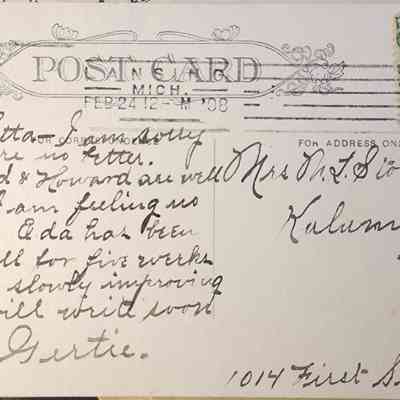 POST CARD
LANSING
MICH.
FEB 24 12-M '08
FOR CORRESPONDENCE
FOR ADDRESS ONL
tta - I am sorry
re no letter.
d & Howard are well
I am feeling no
Ada has been
ll for five weeks
slowly improving
will write soon
Gertie.
Mrs M. L. Sto
Kalam
1014 First S